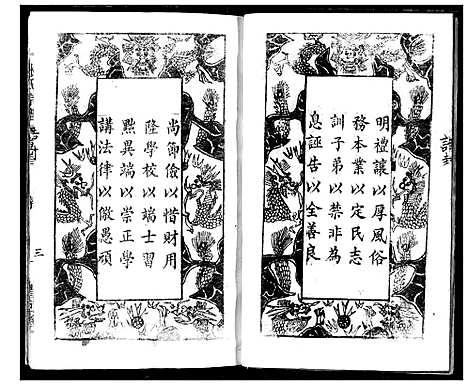 明禮讓以厚風俗
務本業以定民志
訓子弟以禁非為
息誣告以全善良
尚節儉以惜財用
隆學校以端士習
黜異端以崇正學
講法律以儆愚頑
三